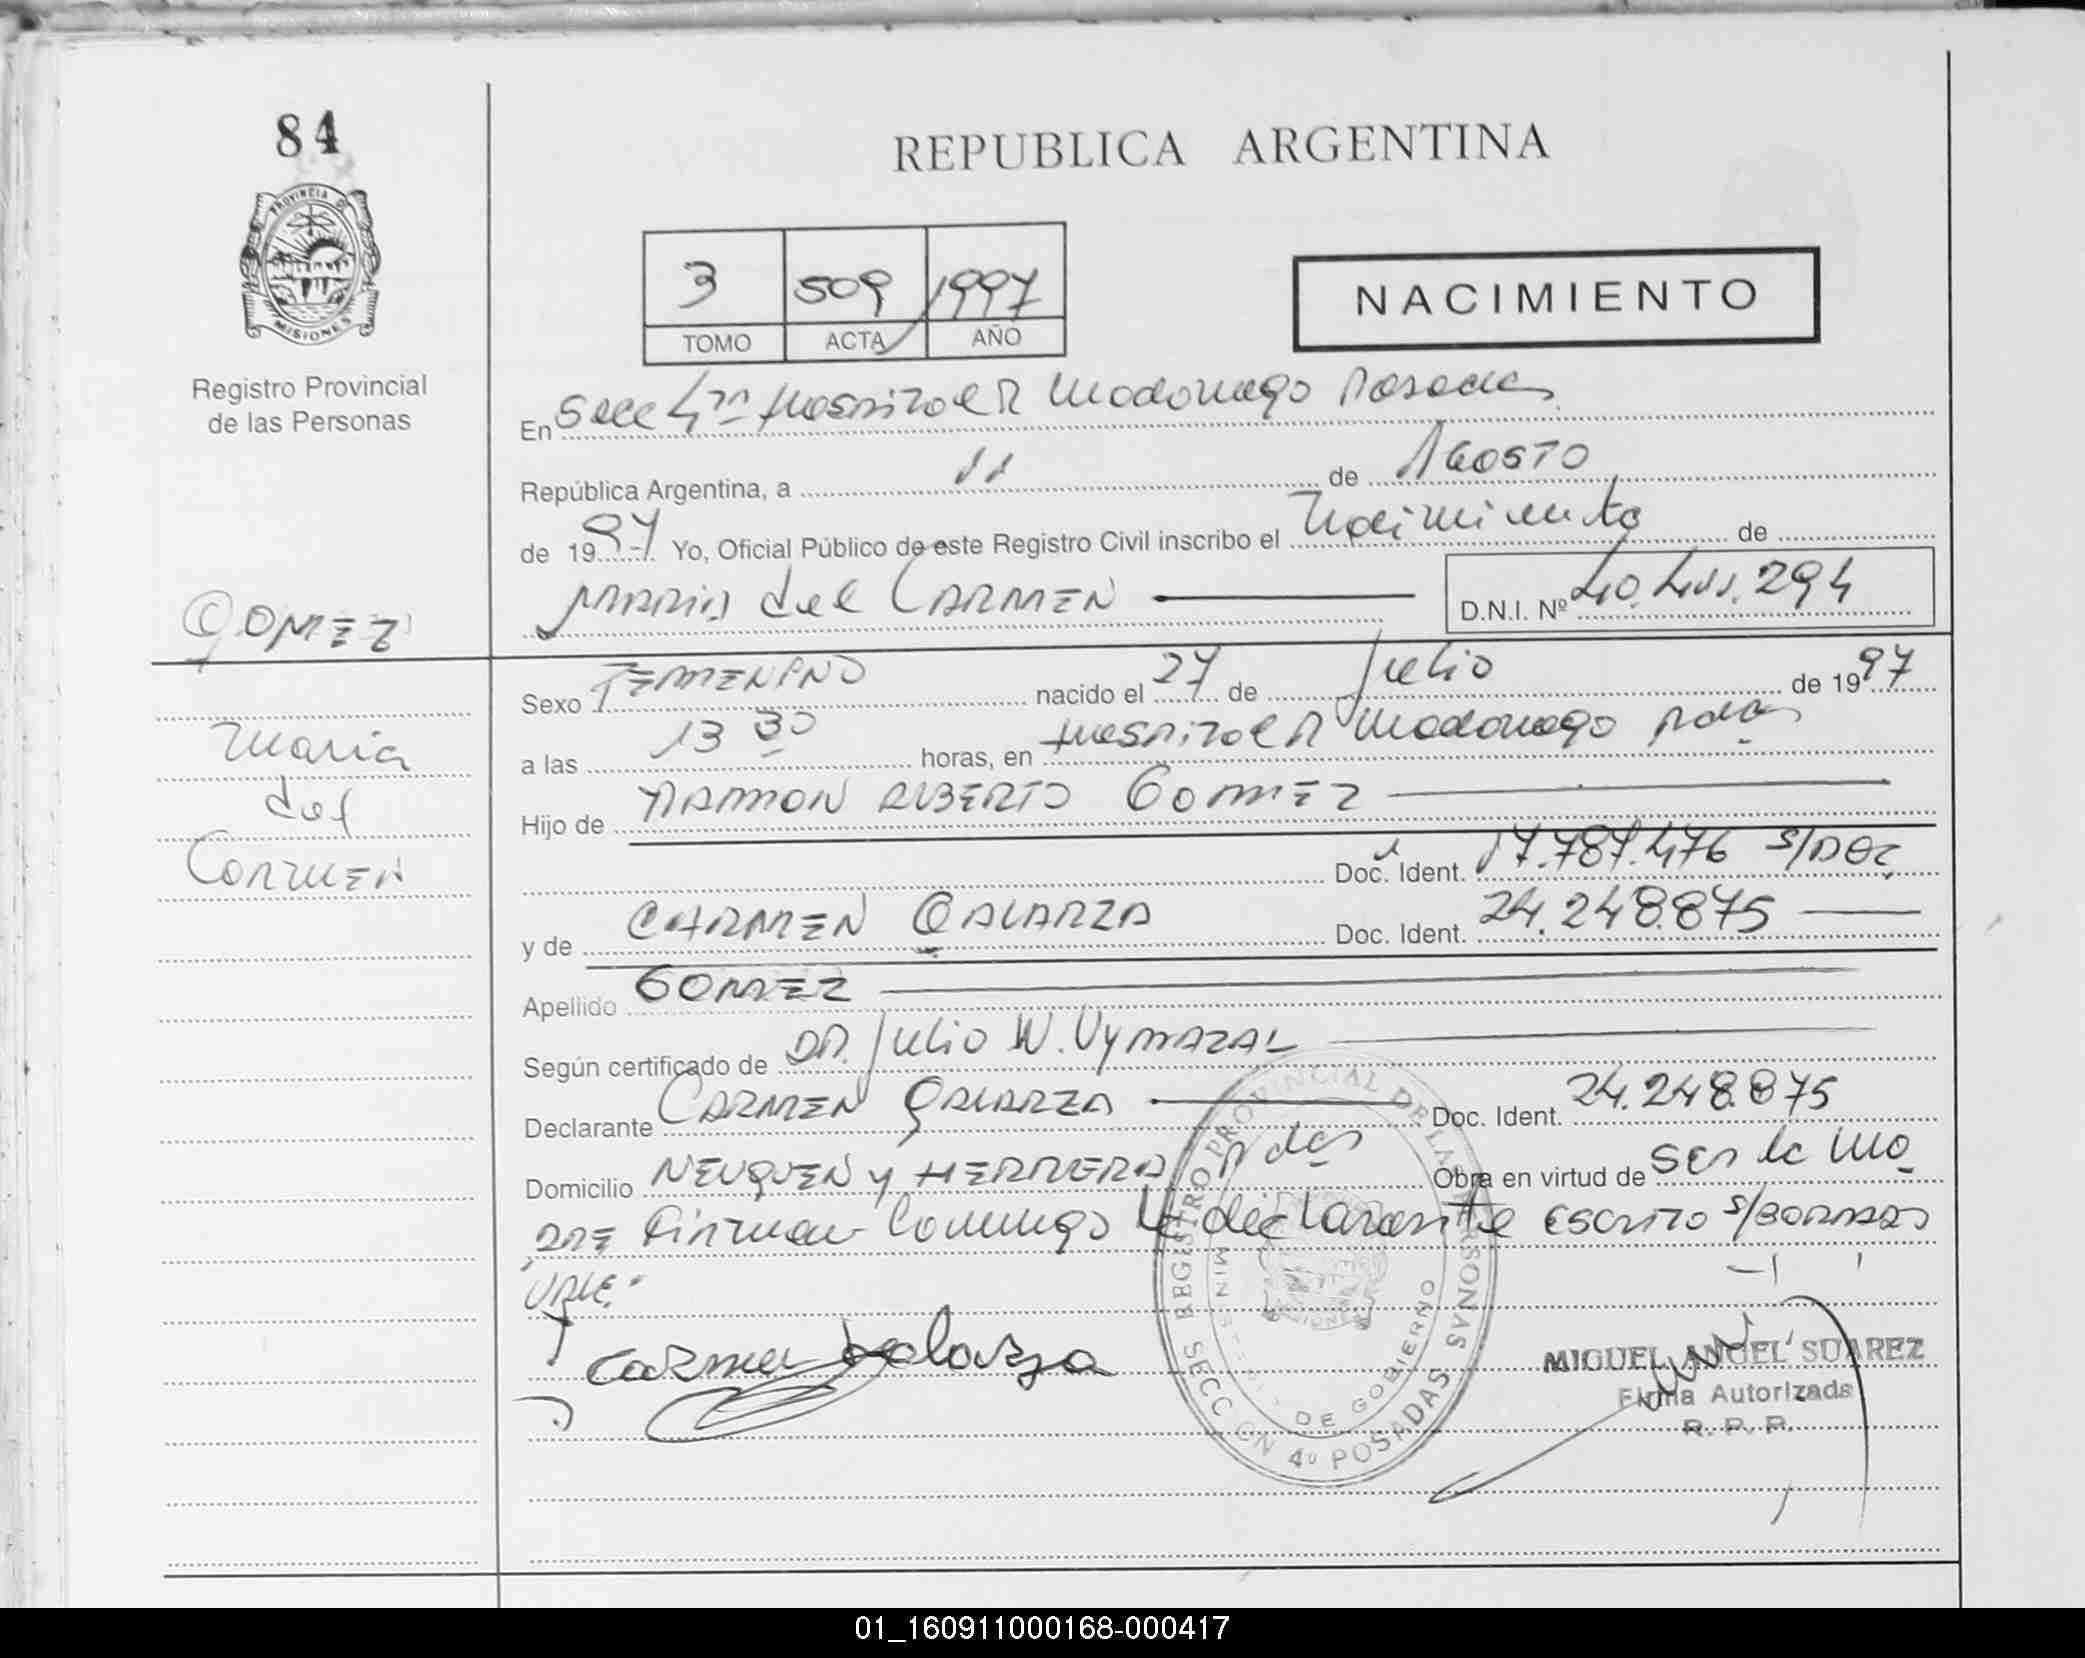 84
REPUBLICA ARGENTINA
PROVINCIA DE
MISIONES
3 509 1997
TOMO ACTA AÑO
NACIMIENTO
Registro Provincial
de las Personas
En Secc 4ta Hospital R Madariaga Posadas
República Argentina, a 11 de AGOSTO
de 1997 Yo, Oficial Público de este Registro Civil inscribo el Nacimiento de
MARIA del CARMEN
D.N.I. Nº 294
GOMEZ
Maria
del
CARMEN
Sexo FEMENINO nacido el 27 de Julio de 1997
a las 13 30 horas, en Hospital R Madariaga Pdas
Hijo de RAMON ALBERTO GOMEZ
Doc. Ident. 17.787.476 S/DEC
y de CARMEN GALARZA Doc. Ident. 24.248.875
Apellido GOMEZ
Según certificado de DR. Julio W. VYMAZAL
Declarante CARMEN GALARZA Doc. Ident. 24.248.875
Domicilio NEUQUEN y HERRERA Pdas Obra en virtud de ser la ma
dre Firman conmigo la declarante escrito s/BORRADO
VALE.
Carmen Galarza
REGISTRO PROVINCIAL DE LAS PERSONAS
MINISTERIO DE GOBIERNO
SECCION 4º POSADAS
MIGUEL ANGEL SUAREZ
Firma Autorizada
R. P. P.
01_160911000168-000417